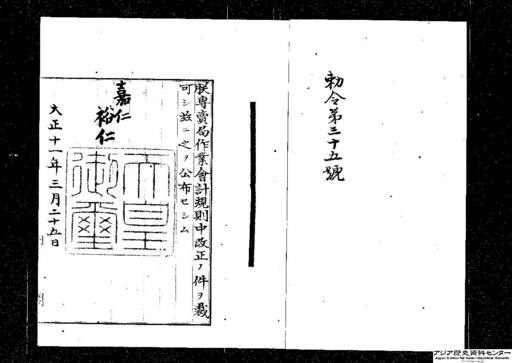 勅令第三十五號
朕專賣局作業會計規則中改正ノ件ヲ裁
可シ玆ニ之ヲ公布セシム
嘉仁
裕仁
天皇
御璽
大正十一年三月二十五日
アジア歴史資料センター
Japan Center for Asian Historical Records